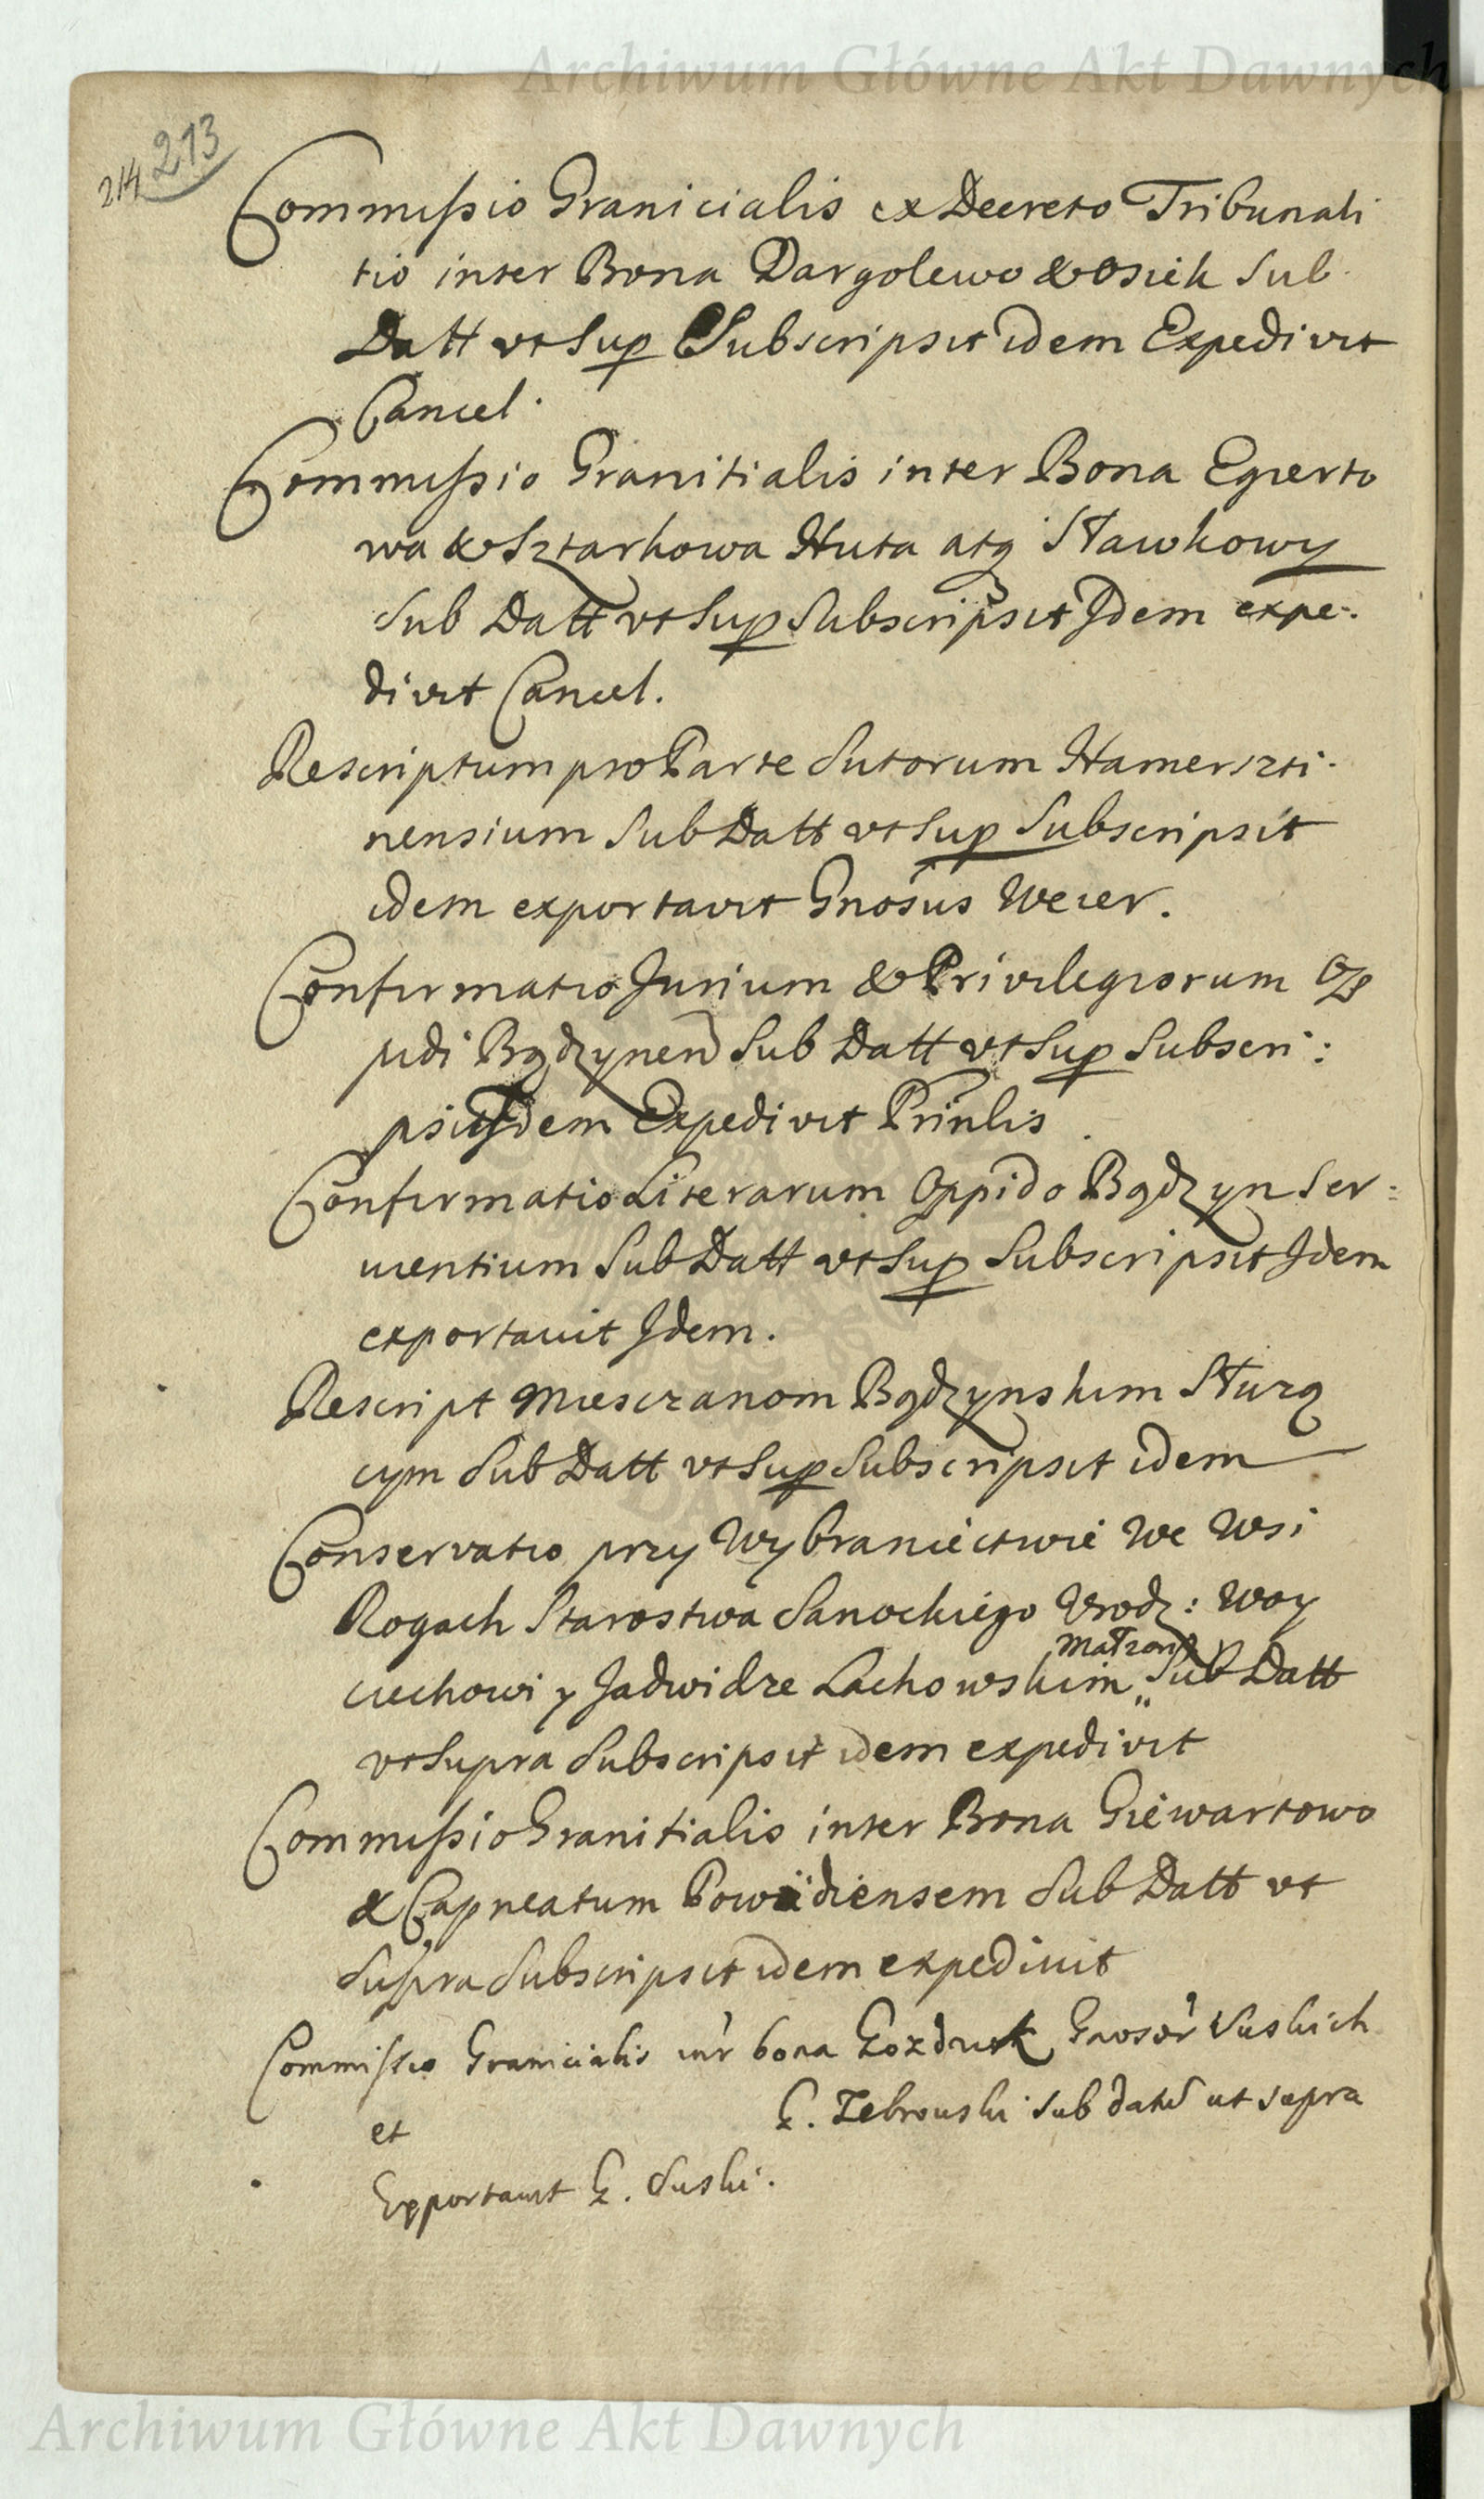 Archiwum Główne Akt Dawnych
213
214
Commissio Granicialis ex Decreto Tribunali
tio inter Bona Dargolewo & Osiek Sub
Datt vt Sup Subscripsit idem Expedivit
Cancel.
Commissio Granitialis inter Bona Egierto
wa & Sztarkowa Huta atq Sławkowy
Sub Datt vt Sup Subscripsit Idem expe:
divit Cancel.
Rescriptum pro Parte Sutorum Hamerszti:
nensium Sub Datt vt Sup Subscripsit
idem exportavit Gnosus Weier.
Confirmatio Jurium & Privilegiorum Op
pidi Bądzynen Sub Datt vt Sup Subscri:
psit Idem Expedivit Prinlis
Confirmatio Literarum Oppido Bądzyn Ser:
uientium Sub Datt vt Sup Subscripsit Idem
exportauit Idem.
Rescript Miesczanom Bądzynskim Słuzą
cym Sub Datt vt Sup Subscripsit idem
Conservatio przy Wybraniectwie We Wsi
Rogach Starostwa Sanockiego Vrodz: Woy
ciechowi y Jadwidze Lachowskim Małzon Sub Datt
vt Supra Subscripsit idem expedivit
Commissio Granitialis inter Bona Giewartowo
& Capneatum Powidiensem Sub Datt vt
Supra Subscripsit idem expediuit
Commissio Granicialis intr bona Gozdurk Gnosor Suskich
et G. Zebrouski sub datt ut supra
Exportauit G. Suski.
Archiwum Główne Akt Dawnych